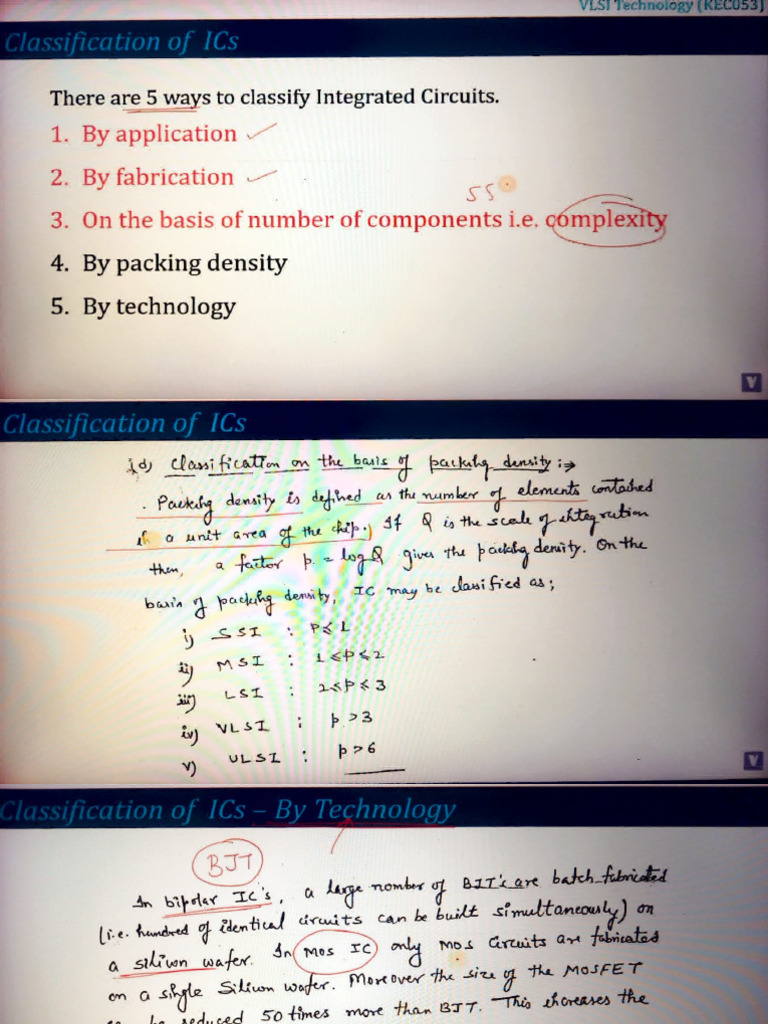 VLSI Technology (KEC053)
Classification of ICs
There are 5 ways to classify Integrated Circuits.
1. By application
2. By fabrication
SS
3. On the basis of number of components i.e. complexity
4. By packing density
5. By technology
V
Classification of ICs
d) Classification on the basis of packing density :⇒
. Packing density is defined as the number of elements contained
in a unit area of the chip. If Q is the scale of integration
then, a factor p = log Q gives the packing density. On the
basis of packing density, IC may be classified as;
i) SSI : P≤1
ii) MSI : 1<P≤2
iii) LSI : 2<P≤3
iv) VLSI : p>3
v) ULSI : p>6
V
Classification of ICs – By Technology
BJT
In bipolar IC's, a large nomber of BJT's are batch fabricated
(i.e. hundred of identical circuits can be built simultaneously) on
a silicon wafer. In MOS IC only MOS circuits are fabricated
on a single Silicon wafer. Moreover the size of the MOSFET
be reduced 50 times more than BJT. This increases the